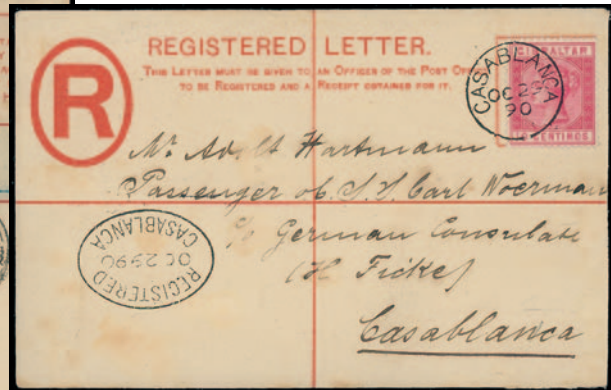 REGISTERED LETTER.
THIS LETTER MUST BE GIVEN TO AN OFFICER OF THE POST
TO BE REGISTERED AND A RECEIPT OBTAINED FOR IT.
R
GIBRALTAR
CENTIMOS
CASABLANCA
OC 29
90
Mr. Hartmann
Passenger ob. S.S. Carl Woerman
c/o German Consulate
(H Ficke)
Casablanca
REGISTERED
OC 29 90
CASABLANCA